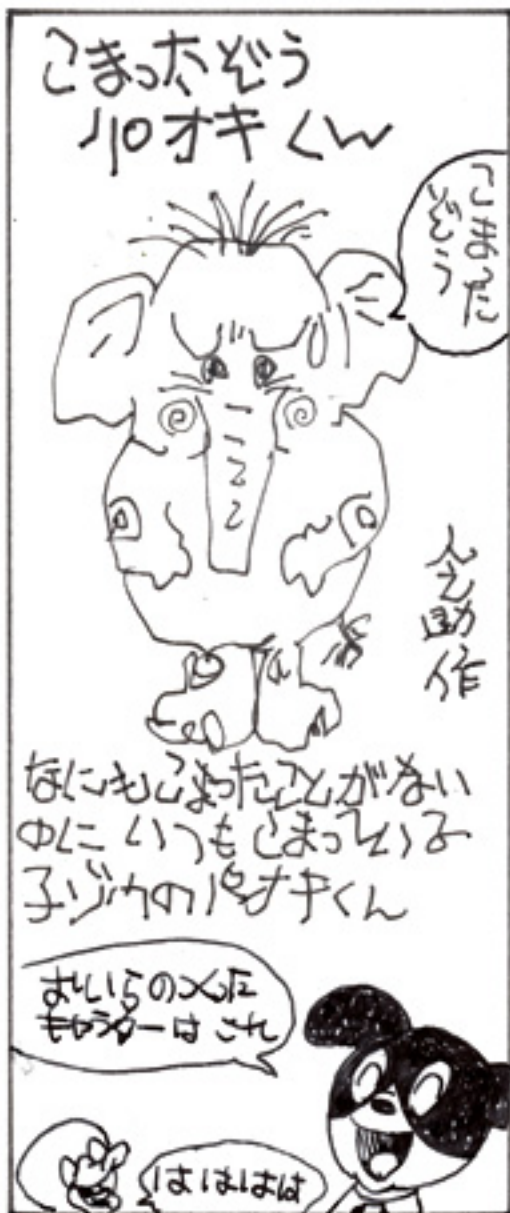 こまったぞう
パオキくん
こまった
ぞう
人之助作
なにもこまったことがない
のに いつもこまっている
子ゾウのパオキくん
おいらのつくった
キャラクターは これ
はははは